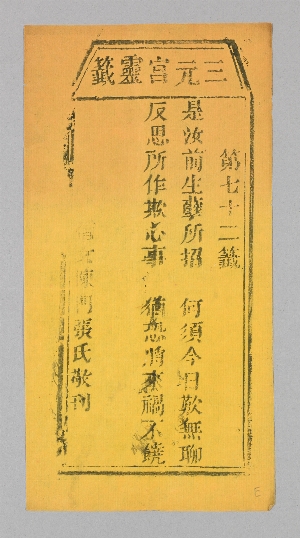 三元宮靈籤
第七十二籤
是汝前生孽所招 何須今日歎無聊
反思所作欺心事 猶恐將來禍不饒
陳門張氏敬刊